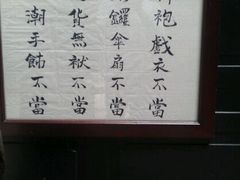 袍戲衣不當
鑼傘扇不當
貨無袱不當
潮手飾不當